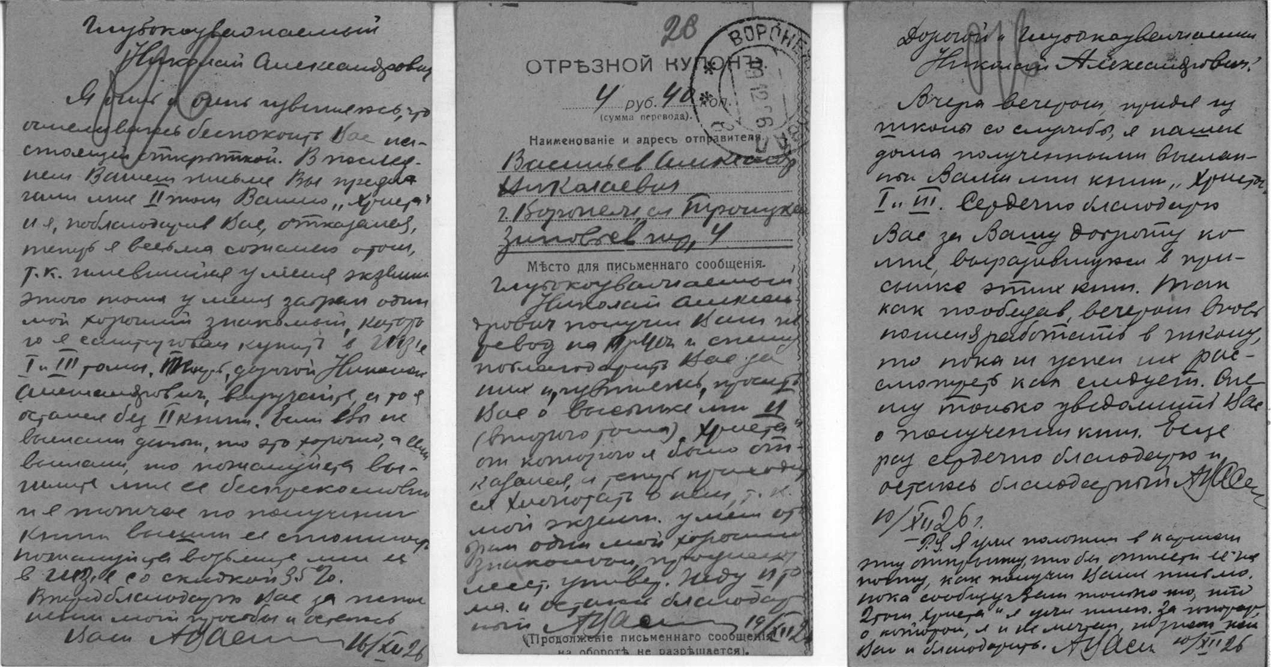 Глубокоуважаемый
Николай Александрович
Я очень и очень извиняюсь, что
осмеливаюсь беспокоить Вас на-
стоящей открыткой. В послед-
нем Вашем письме Вы предла
гали мне II том Вашего „Христа"
и я, поблагодарив Вас, отказался,
теперь я весьма сожалею о том,
т.к. имевшийся у меня экземпл
этого тома у меня забрал один
мой хороший знакомый, которо
го я сагитировал купить в Гизе
I и III тома. Теперь, дорогой Николай
Александрович, выручайте, а то я
остался без II книги. Если Вы не
выслали деньги, то это хорошо, а если
выслали, то пожалуйста вы-
шлите мне ее беспрекословно
и я тотчас по получении
книги вышлю ее стоимость
пожалуйста возьмите мне ее
в Гизе со скидкой 35%.
Вперед благодарю Вас за испол
нение моей просьбы и остаюсь
Ваш АВаси 16/XII 26
28
ВОРОНЕЖ
12.26
ОТРѢЗНОЙ КУПОНЪ
4 руб. 40 коп.
(сумма перевода).
Наименование и адресъ отправителя
Васильев Александр
Николаевич
г. Воронеж, ул. Троицкая
Зиновьев пер, 4
Мѣсто для письменнаго сообщенія.
Глубокоуважаемый
Николай Алексан-
дрович получил Ваш пе
ревод на и спешу
поблагодарить Вас за
них и, извиняясь, просить
Вас о высылке мне II
(второго тома) „Христа"
от которого я было от-
казался, и теперь приходит
ся хлопотать о нем, т.к.
мой экземпл. у меня от
брал один мой хороший
знакомый, преподает
мест. универ. Жду II то
ма и остаюсь благодар
ный АВаси 19/XII 26
(Продолженіе письменнаго сообщенія
на оборотѣ не разрѣшается).
Дорогой и Глубокоуважаемый
Николай Александрович!
Вчера вечером придя из
школы со службы, я нашел
дома полученными выслан-
ные Вами мне книги „Христа"
I и III. Сердечно благодарю
Вас за Вашу доброту ко
мне, выразившуюся в при-
сылке этих книг. Так
как пообедав, вечером вновь
пошел работать в школу,
то пока не успел их рас-
смотреть как следует. Спе-
шу только уведомить Вас
о получении книг. Еще
раз сердечно благодарю и
остаюсь благодарный АВаси
10/XII 26 г.
P.S. Я уже положил в карман
эту открытку, что бы отнести ее на
почту, как получил Ваше письмо.
пока сообщу Вам только то, что
2 том „Христа" я уже имею. За
о которой, я и не мечтал,
Вам и благодарить. АВаси 10/XII 26